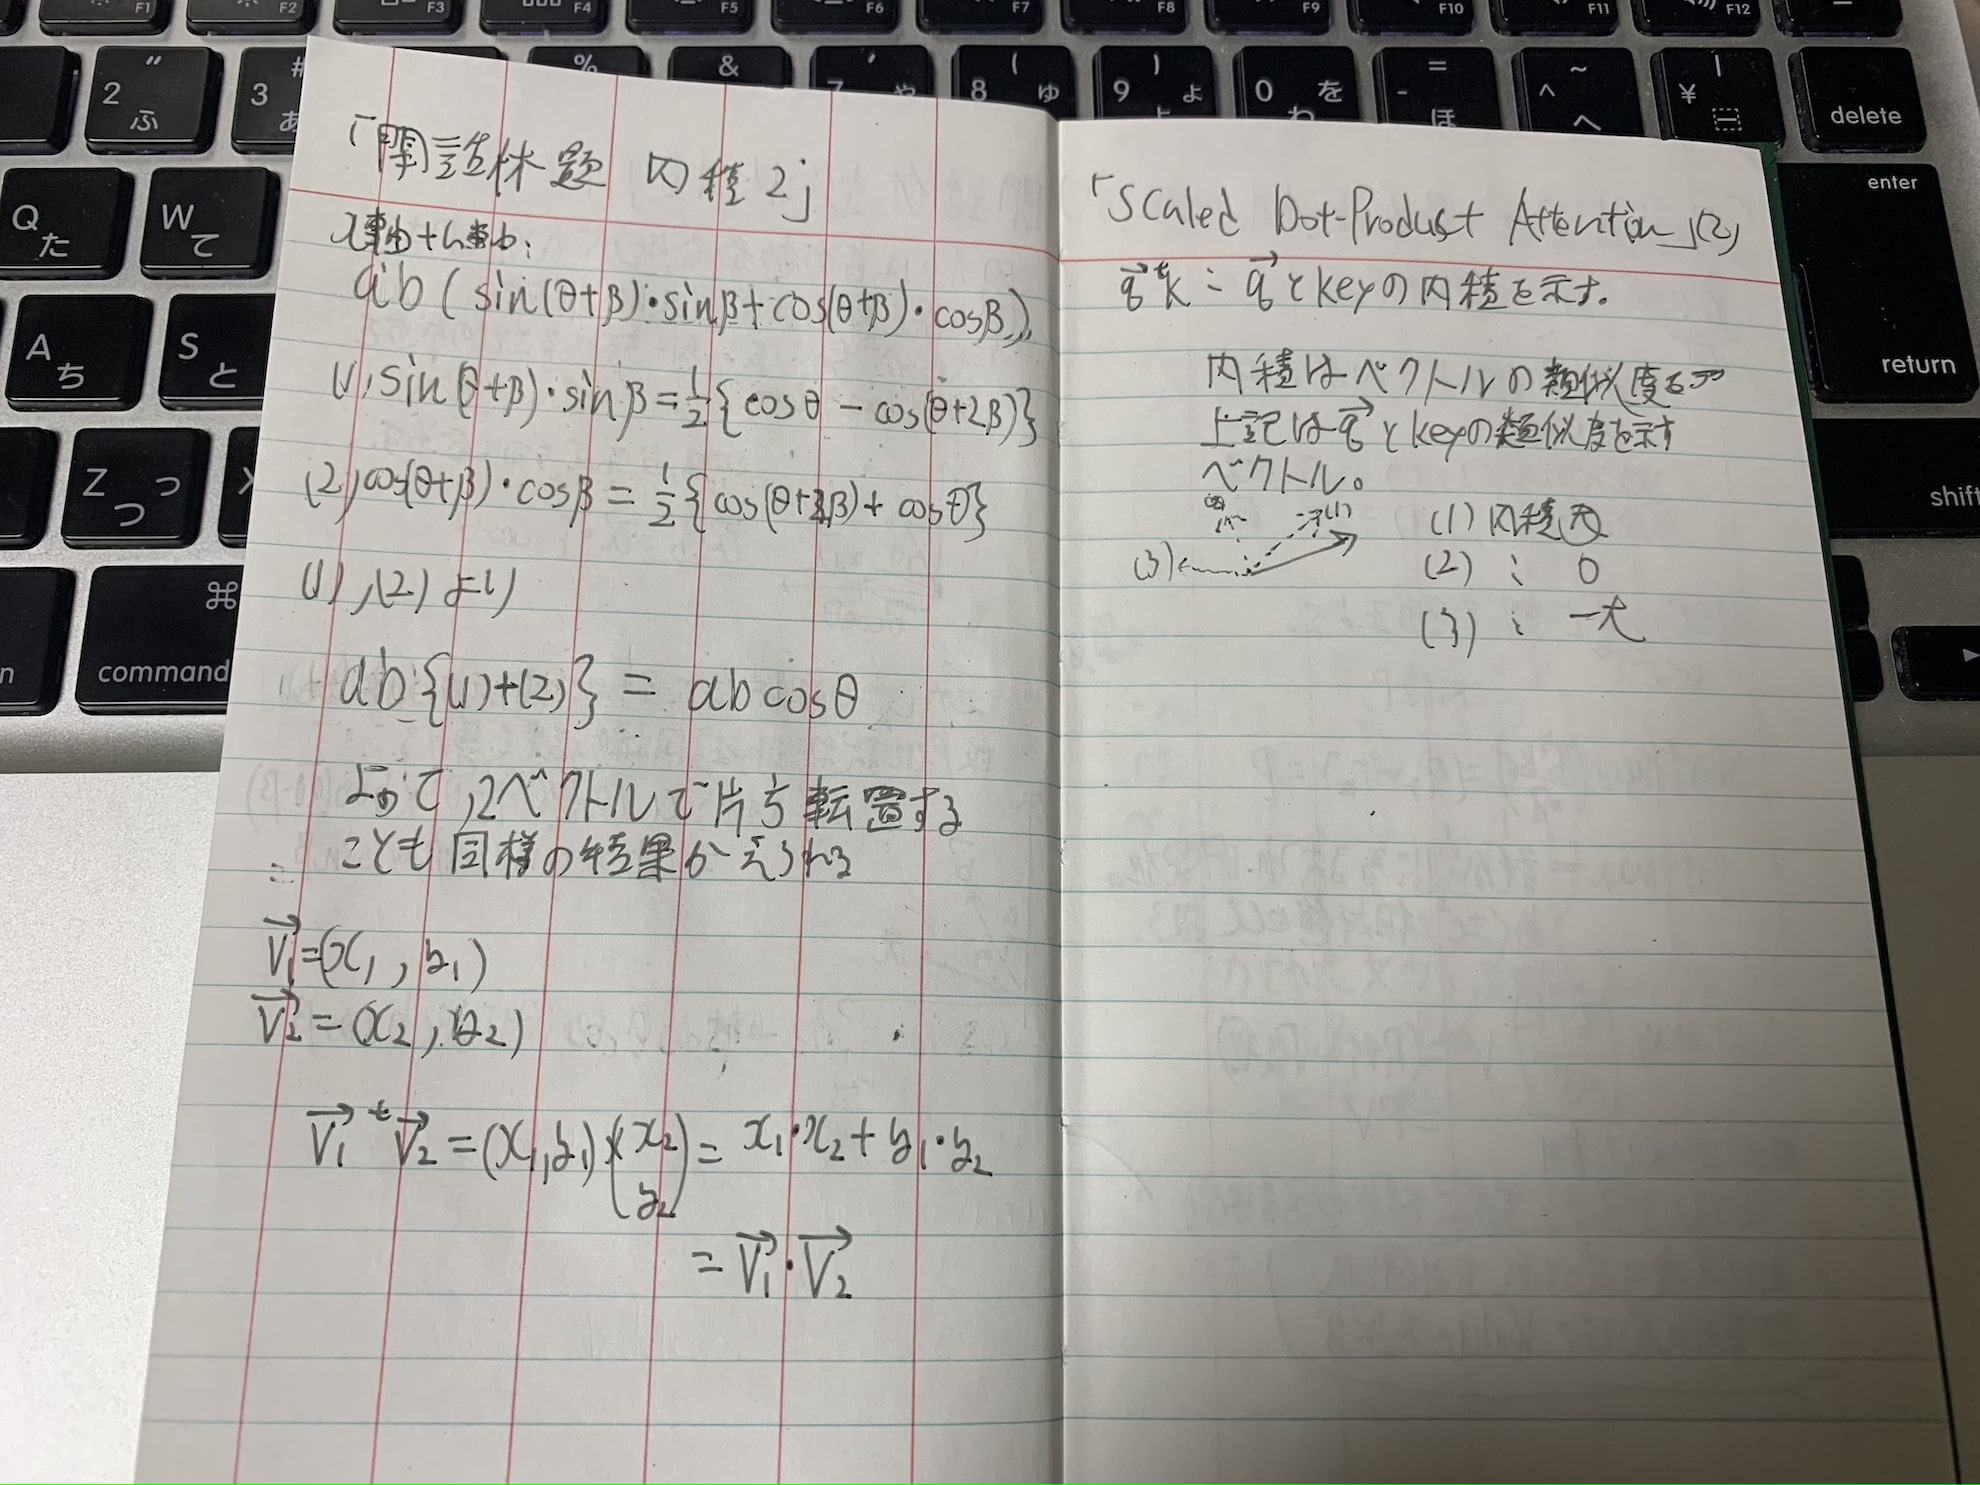 F1 F2 F3 F4 F5 F6 F7 F8 F9 F10 F11 F12
" # % & ( ) = ~ |
2 ふ 3 あ 7 や 8 ゆ 9 よ 0 を わ - ほ ^ へ ¥ delete
Q た W て enter
A ち S と return
Z つ っ shift
⌘ command
「閑話休題 内積2」
x軸+y軸:
ab(sin(θ+β)・sinβ+cos(θ+β)・cosβ)
(1), sin(θ+β)・sinβ=1/2{cosθ - cos(θ+2β)}
(2) cos(θ+β)・cosβ = 1/2{cos(θ+2β)+ cosθ}
(1), (2) より
ab{(1)+(2)} = ab cosθ
よって, 2ベクトルで片方転置する
ことも同様の結果がえられる
V₁→=(x₁, y₁)
V₂→=(x₂, y₂)
V₁→ ᵗV₂→ = (x₁, y₁)(x₂ y₂) = x₁・x₂ + y₁・y₂
= V₁→・V₂→
「Scaled Dot-Product Attention」(2)
q→ᵗk : q→とkeyの内積を示す。
内積はベクトルの類似度
上記はq→とkeyの類似度を示す
ベクトル。
(1) (1) 内積大
(3) (2) : 0
(3) : -大